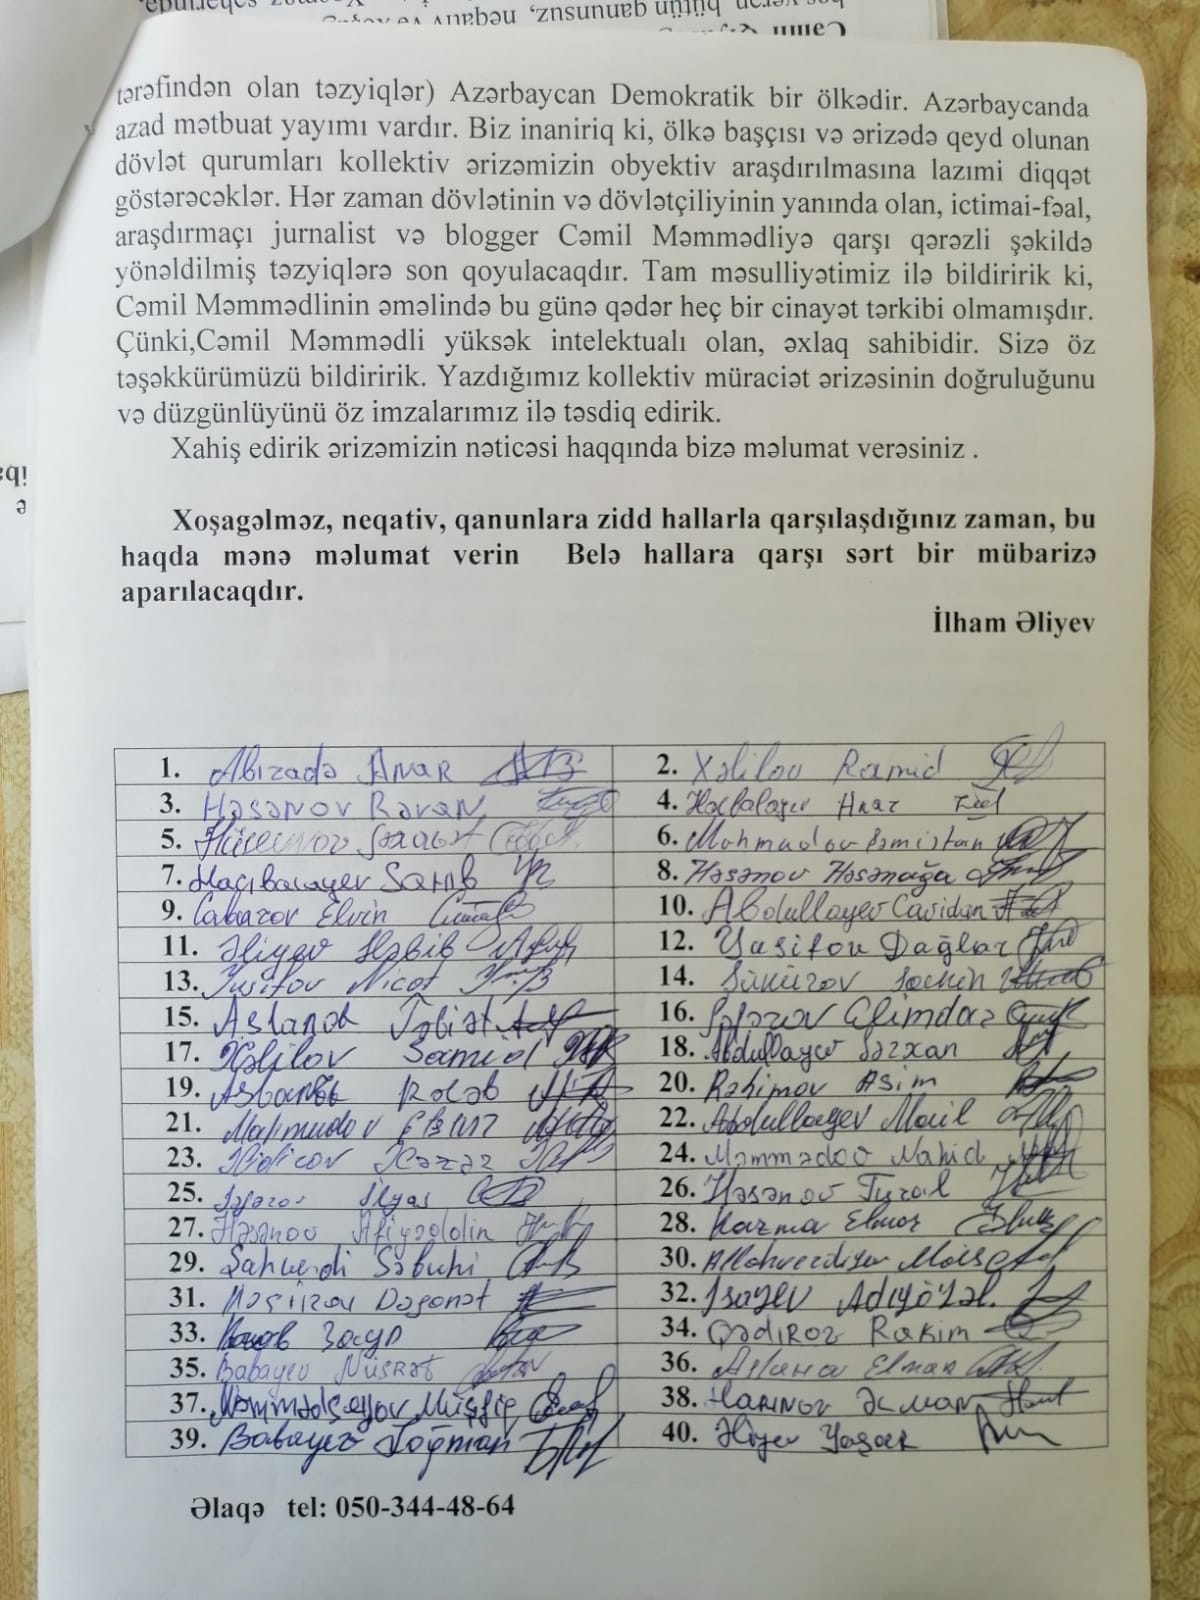 tərəfindən olan təzyiqlər) Azərbaycan Demokratik bir ölkədir. Azərbaycanda
azad mətbuat yayımı vardır. Biz inaniriq ki, ölkə başçısı və ərizədə qeyd olunan
dövlət qurumları kollektiv ərizəmizin obyektiv araşdırılmasına lazımi diqqət
göstərəcəklər. Hər zaman dövlətinin və dövlətçiliyinin yanında olan, ictimai-fəal,
araşdırmaçı jurnalist və blogger Cəmil Məmmədliyə qarşı qərəzli şəkildə
yönəldilmiş təzyiqlərə son qoyulacaqdır. Tam məsulliyətimiz ilə bildiririk ki,
Cəmil Məmmədlinin əməlində bu günə qədər heç bir cinayət tərkibi olmamışdır.
Çünki,Cəmil Məmmədli yüksək intelektualı olan, əxlaq sahibidir. Sizə öz
təşəkkürümüzü bildiririk. Yazdığımız kollektiv müraciət ərizəsinin doğruluğunu
və düzgünlüyünü öz imzalarımız ilə təsdiq edirik.
Xahiş edirik ərizəmizin nəticəsi haqqında bizə məlumat verəsiniz .
Xoşagəlməz, neqativ, qanunlara zidd hallarla qarşılaşdığınız zaman, bu
haqda mənə məlumat verin Belə hallara qarşı sərt bir mübarizə
aparılacaqdır.
İlham Əliyev
1. Abizadə Anar
2. Xəlilov Ramid
3. Həsənov Rəvan
4. Hacbalayev
5.
6. Məhmudov Şəmistan
7. Haçıbalayev
8. Həsənov Həsənağa
9. Cabarov Elvin
10. Abdullayev Cavidan
11. Əliyev Həbib
12. Yusifov Dağlar
13. Yusifov Nicat
14. Şükürov
15. Aslanov
16. Səfərov Elimdar
17. Xəlilov Samid
18. Abdullayev Sərxan
19. Rəcəb
20. Rəhimov Asim
21. Mahmudov
22. Abdullayev Mail
23.
24. Məmmədov Nahid
25. Səfərov İlyas
26. Həsənov Tural
27. Həsənov Afiyəddin
28. Kazma
29. Şahverdi Səbuhi
30. Allahverdiyev
31. Dəyanət
32. İsayev Adıyözəl.
33.
34. Qədirov Rakim
35. Babayev Nüsrət
36. Elman
37. Müşfiq
38.
39. Babayev Loğman
40. Əliyev Yaşar
Əlaqə tel: 050-344-48-64